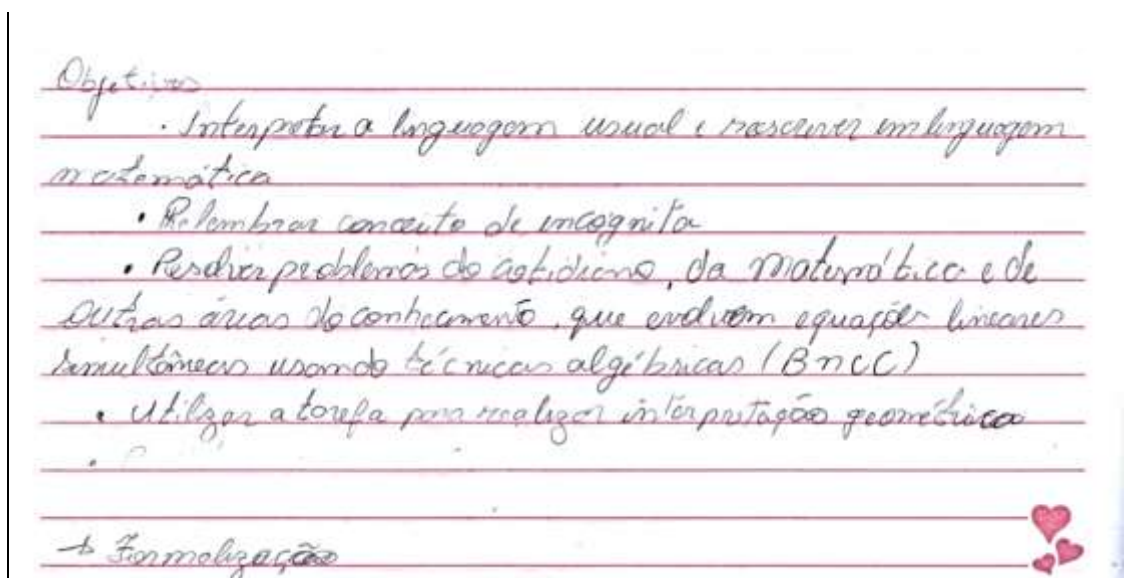 Objetivos
· Interpretar a linguagem usual e reescrever em linguagem
matemática
• Relembrar conceito de incógnita
• Resolver problemas do cotidiano, da matemática e de
outras áreas do conhecimento, que evolvem equações lineares
simultâneas usando técnicas algébricas (BNCC)
• Utilizar a tarefa para realizar interpretação geométrica
•
→ Formalização